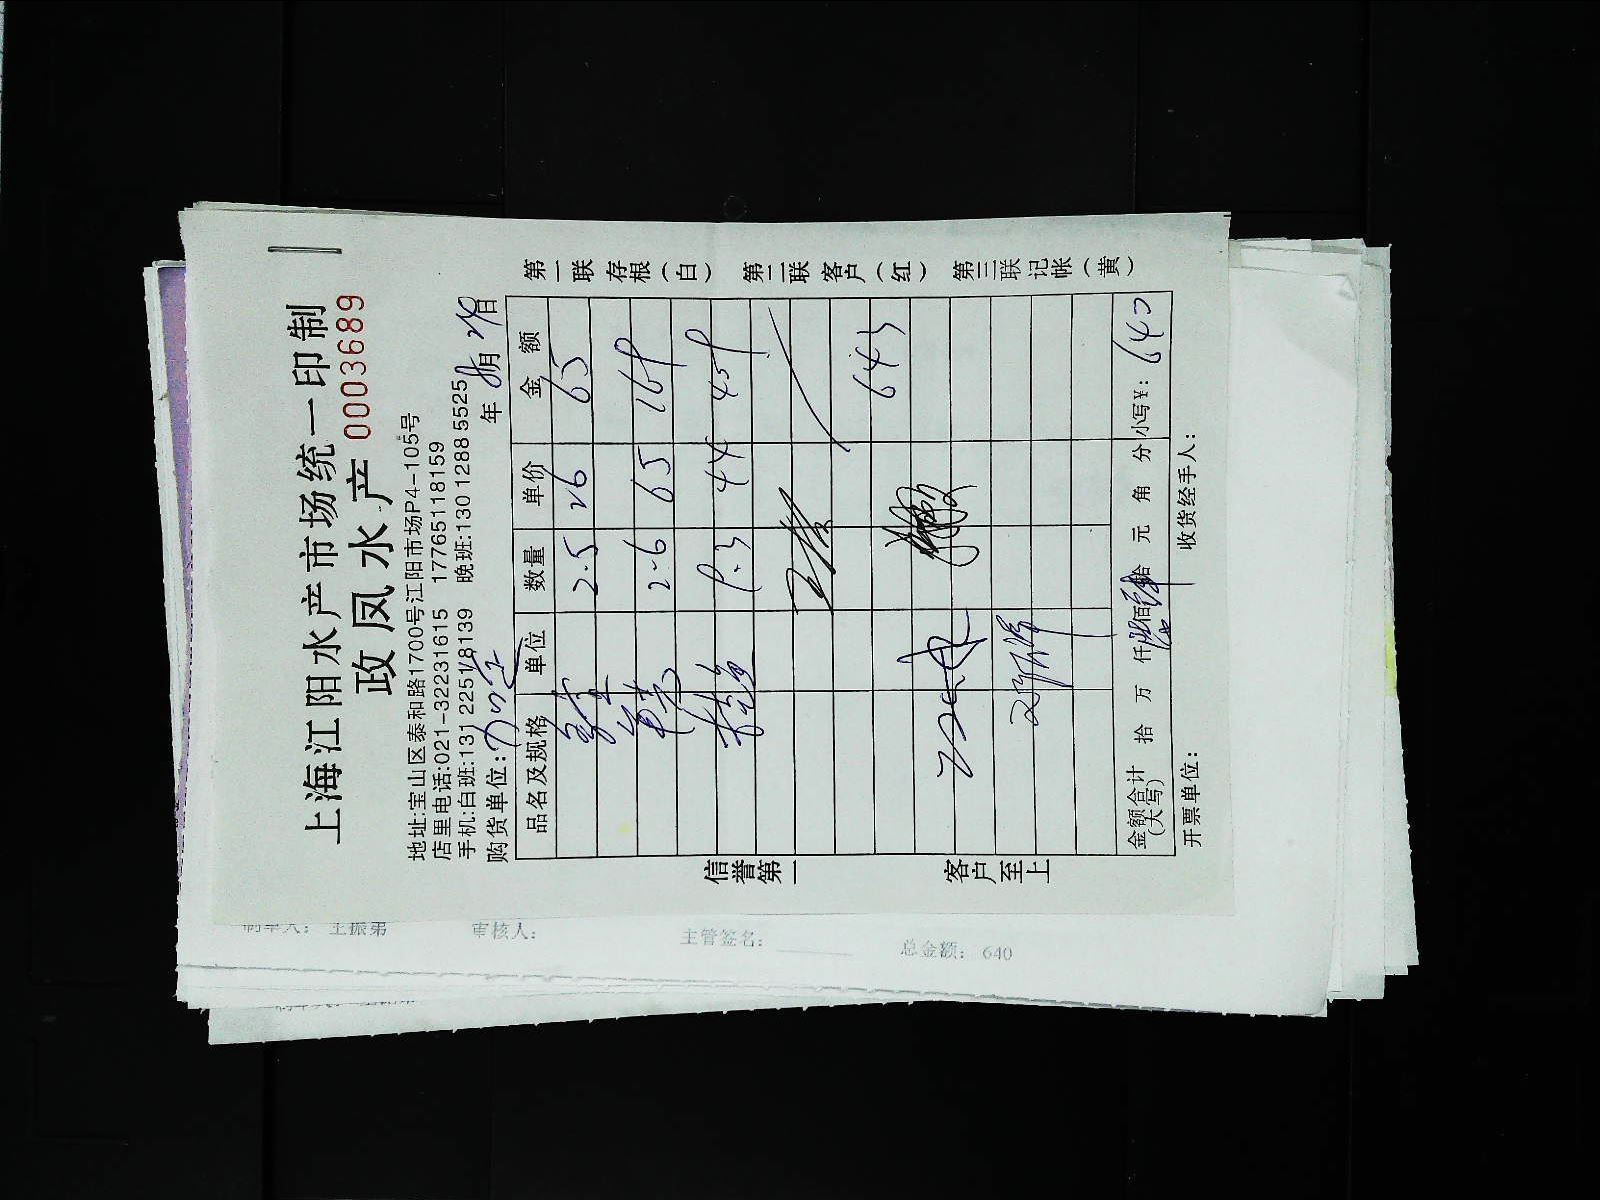 上海江阳水产市场统一印制
政凤水产 0003689
地址:宝山区泰和路1700号江阳市场P4-105号
店里电话:021-32231615 17765118159
手机:白班:131 2251 8139 晚班:130 1288 5525
购货单位: 年 8月 28日
品名及规格 单位 数量 单价 金额
2.5 26 65
2.6 65 169
9.3 44 409
643
金额合计(大写) 拾 万 仟 佰 拾 元 角 分 小写¥: 640
开票单位: 收货经手人:
信誉第一 客户至上
第一联 存根(白) 第二联 客户(红) 第三联 记帐(黄)
制单人: 王振第 审核人: 主管签名: 总金额: 640